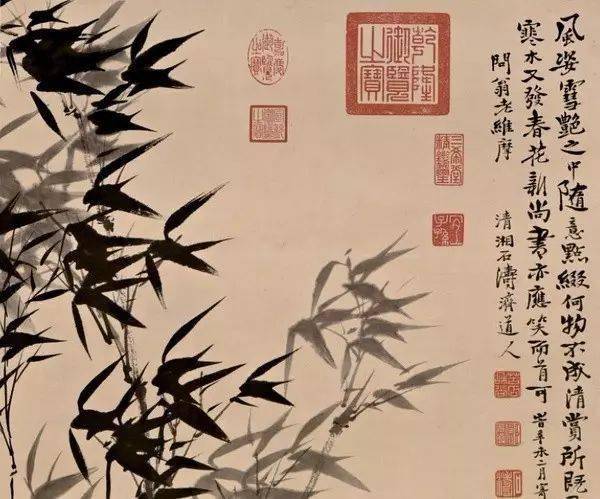 風姿雪艷之中隨意點綴何物不成清賞所既
寒木又發春花新尚書亦應笑而首可旹辛未二月
問翁老維摩
清湘石濤濟道人
乾隆御覽之寶
嘉慶御覽之寶
三希堂精鑑璽
宜子孫